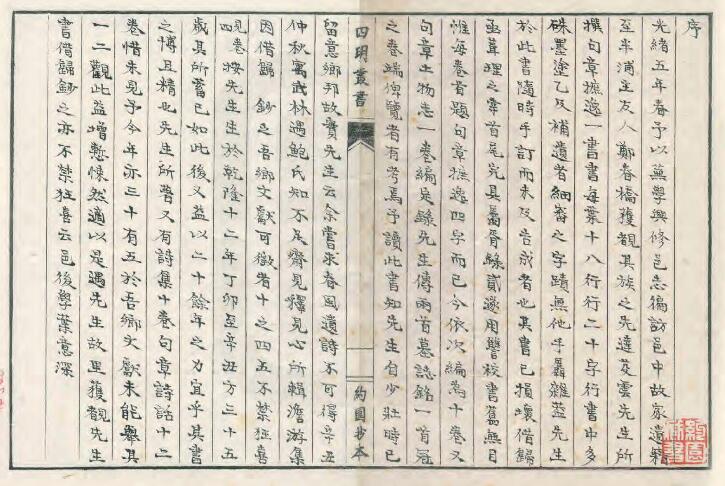 序
光緒五年春予以蕪學與修邑志徧訪邑中故家遺籍
至半浦主友人鄭春橋獲觀其族之先達芷雲先生所
撰句章摭逸一書書每葉十八行行二十字行書中多
硃墨塗乙及補遺首細審之字蹟無他手羼雜蓋先生
於此書隨時手訂而未及告成者也其書已損壞借歸
亟葺理之常首尾完具爰胥錄貳遂用讐校書舊無目
惟每卷首題句章摭逸四字而已今依次編為十卷又
句章土物志一卷編足錄先生傳兩首墓誌銘一首冠
之卷端俾覽者有考焉予讀此書知先生自少壯時已
四明叢書
約園抄本
留意鄉邦故實先生云余嘗求春風遺詩不可得辛丑
仲秋寓武林遇鮑氏知不足齋見釋見心所輯澹游集
因借歸鈔之吾鄉文獻可徵者十之四五不禁狂喜
四現卷按先生生於乾隆十二年丁卯至辛丑方三十五
歲其所蓄已如此後又益以二十餘年之力宜乎其書
之博且精也先生所著又有詩集十卷句章詩話十二
卷惜未見予今年亦三十有五於吾鄉文獻未能舉其
一二觀此益增慙悚然適以是遇先生故里獲觀先生
書借歸鈔之亦不禁狂喜云邑後學葉意深